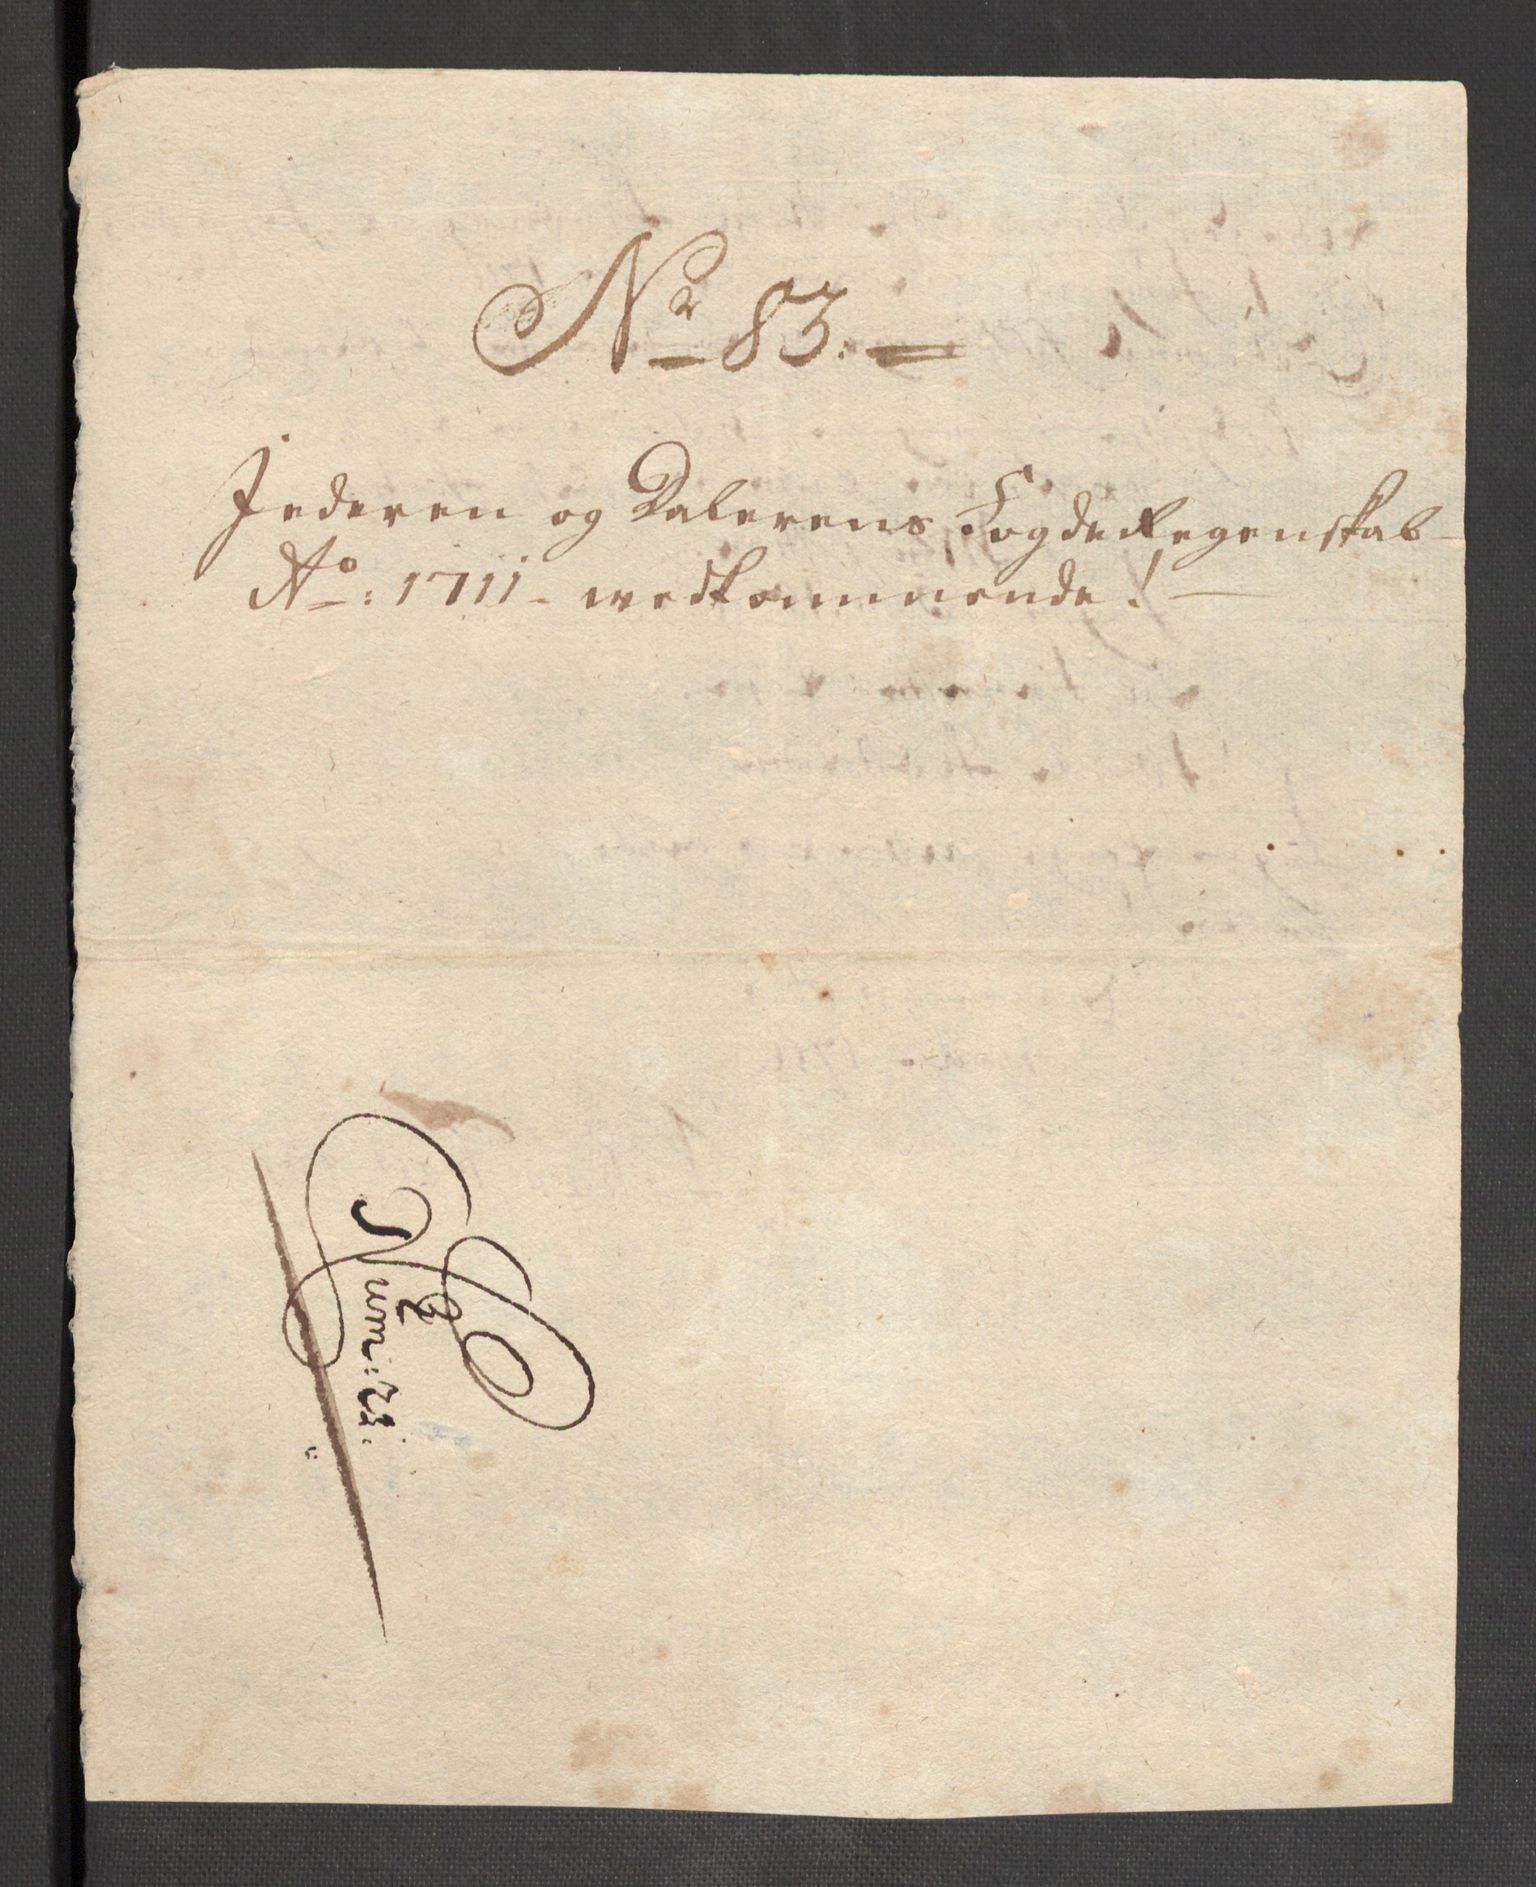 No 83.
Jederen og Dalerens Fogde Regenskab
Ao: 1711 - wedkommende!
Num: 21.